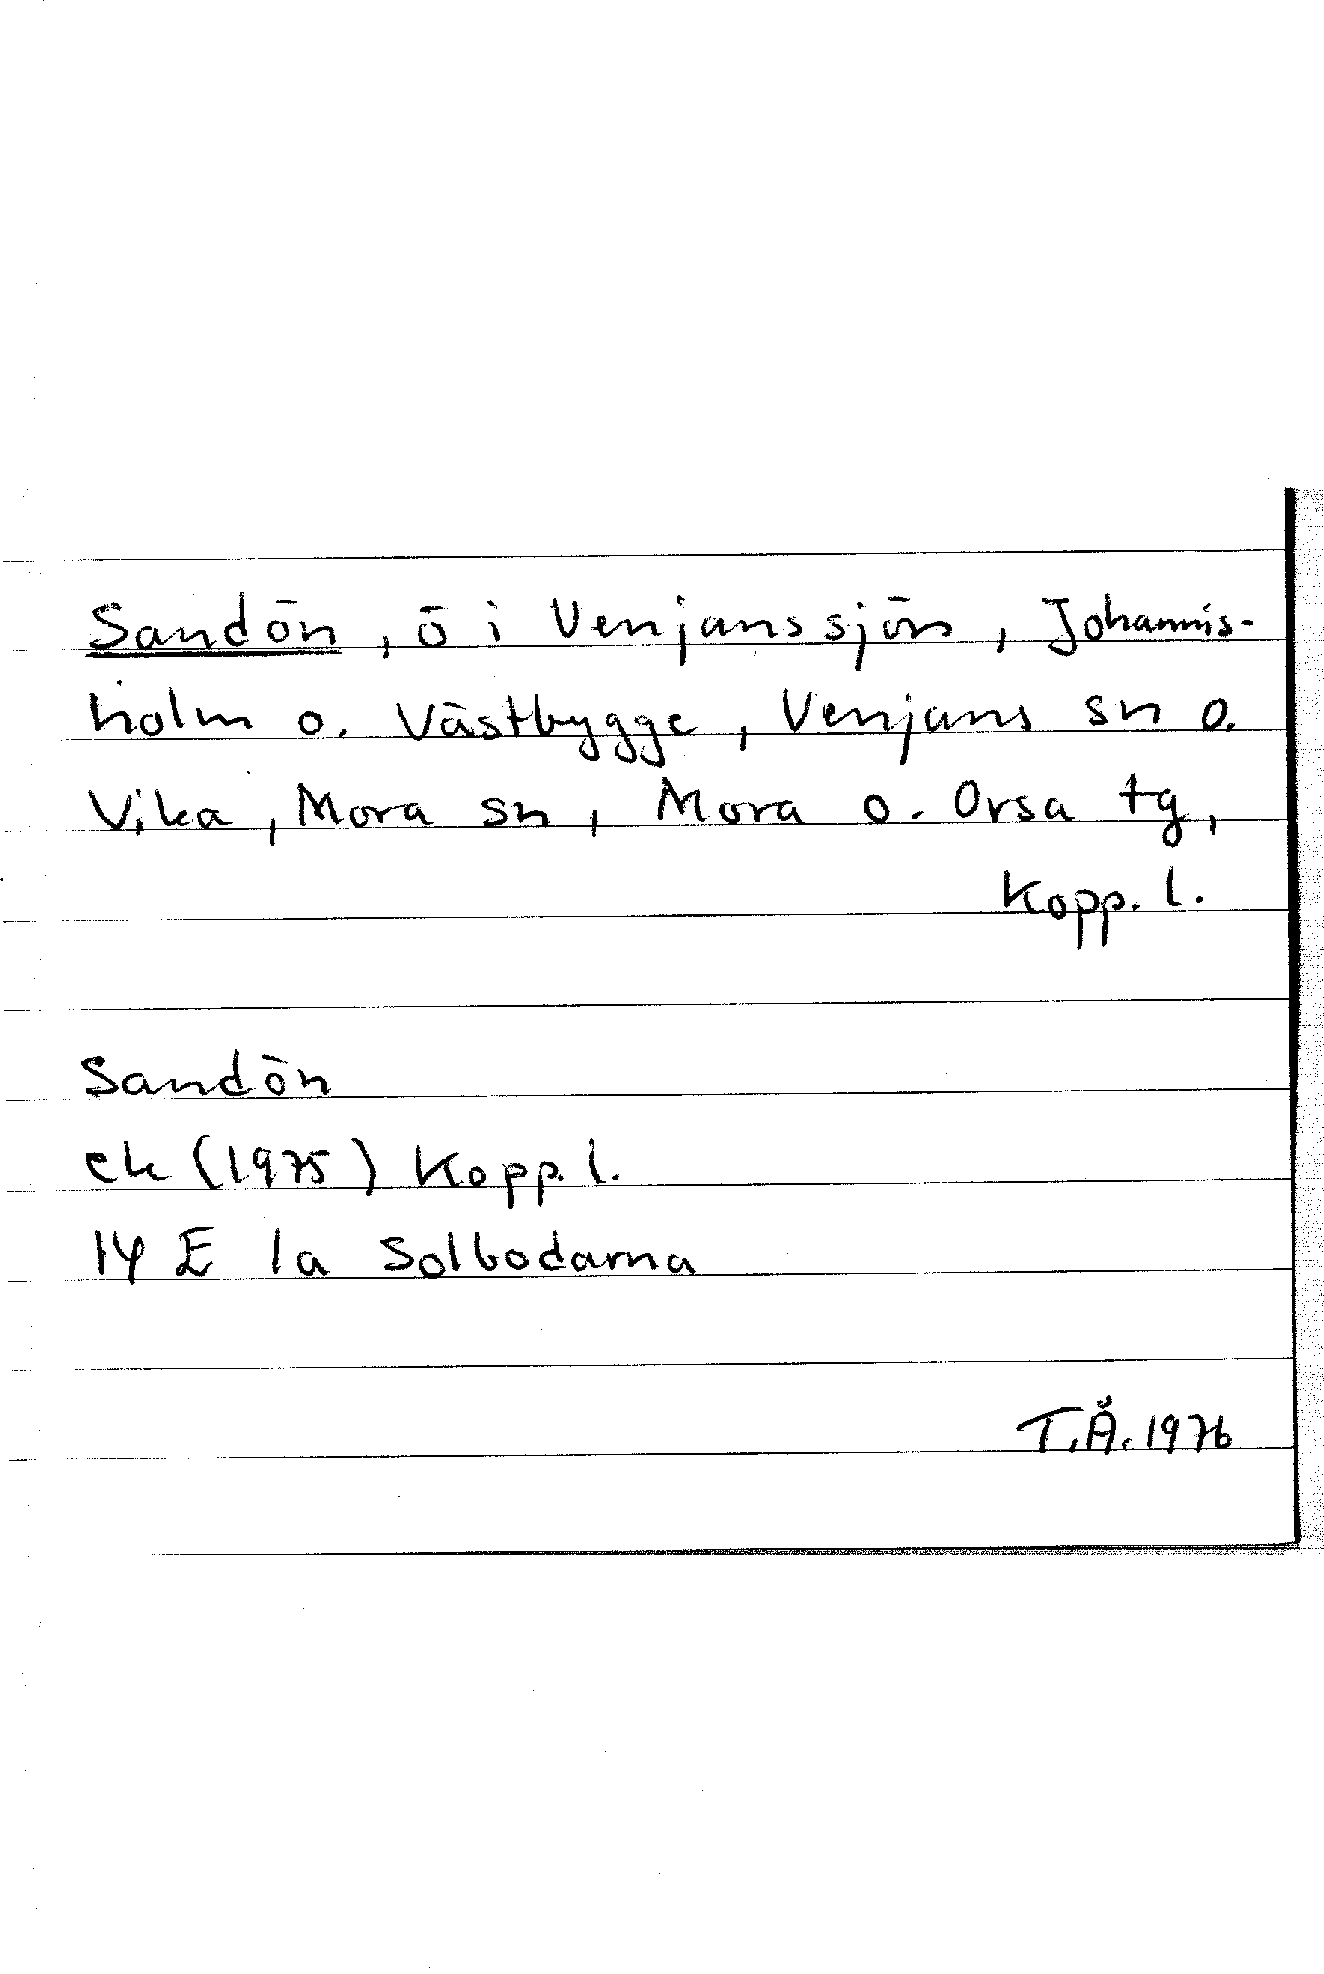 Sandön, ö i Venjanssjön, Johannis-
holm o. Västbygge, Venjans sn o.
Vika, Mora sn, Mora o. Orsa tg,
Kopp. l.
Sandön
ek (1975) Kopp. l.
14 E 1a Solbodarna
T.Å. 1976